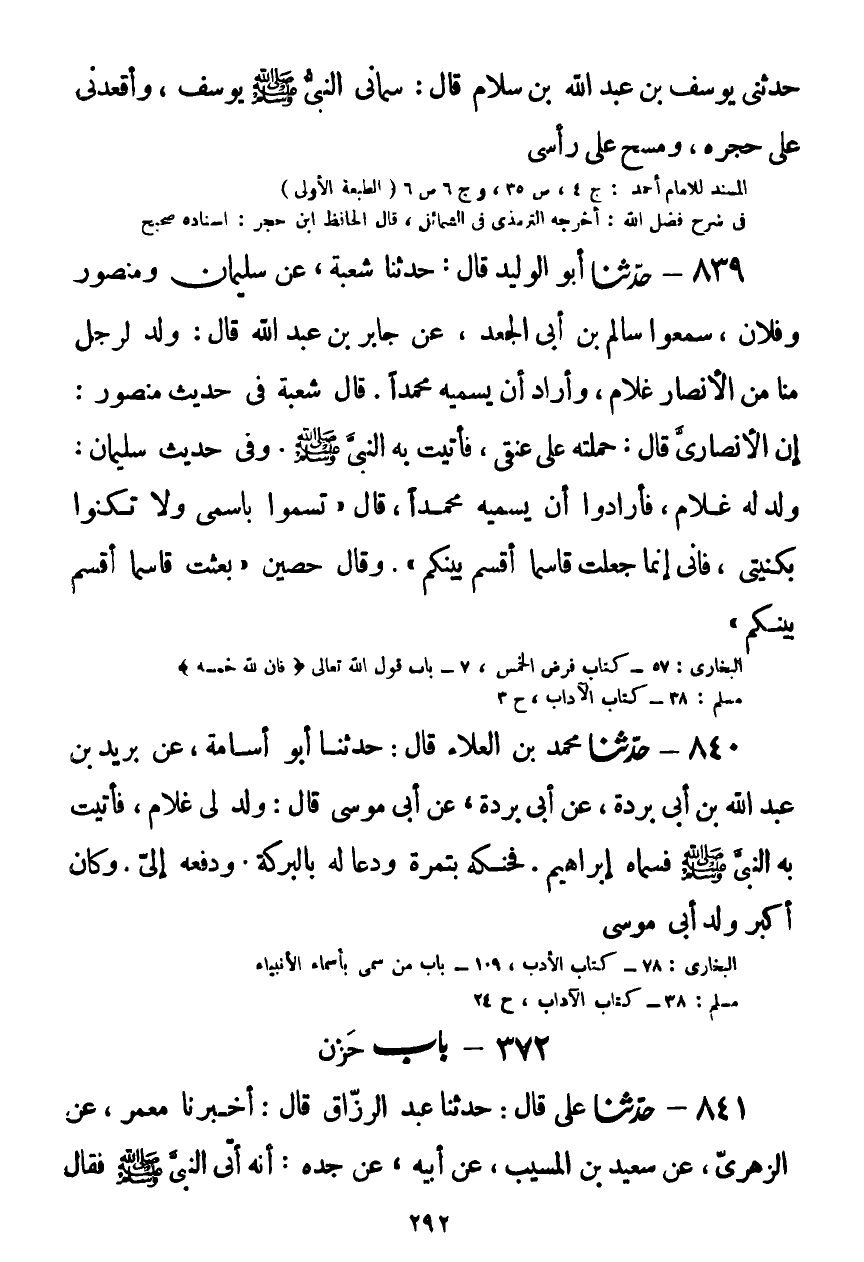 حدثنى يوسف بن عبد الله بن سلام قال : سمانى النبىُّ ﷺ يوسف ، وأقعدنى
على حجره ، ومسح على رأسى
المسند للامام أحمد : ج ٤ ، ص ٣٥ ، و ج ٦ ص ٦ ( الطبعة الأولى )
فى شرح فضل الله : أخرجه الترمذى فى الشمائل ، قال الحافظ ابن حجر : اسناده صحيح
٨٣٩ – حدّثنا أبو الوليد قال : حدثنا شعبة ، عن سليمان ومنصور
وفلان ، سمعوا سالم بن أبى الجعد ، عن جابر بن عبد الله قال : ولد لرجل
منا من الأنصار غلام ، وأراد أن يسميه محمداً . قال شعبة فى حديث منصور :
إن الأنصارىَّ قال : حملته على عنقى ، فأتيت به النبىَّ ﷺ . وفى حديث سليمان :
ولد له غلام ، فأرادوا أن يسميه محمداً ، قال « تسموا باسمى ولا تكنوا
بكنيتى ، فانى إنما جعلت قاسما أقسم بينكم » . وقال حصين « بعثت قاسما أقسم
بينكم »
البخارى : ٥٧ – كتاب فرض الخمس ، ٧ – باب قول الله تعالى ﴿ فان لله خمسه ﴾
مسلم : ٣٨ – كتاب الآداب ، ح ٣
٨٤٠ – حدّثنا محمد بن العلاء قال : حدثنا أبو أسامة ، عن بريد بن
عبد الله بن أبى بردة ، عن أبى بردة ، عن أبى موسى قال : ولد لى غلام ، فأتيت
به النبىَّ ﷺ فسماه إبراهيم . فحنكه بتمرة ودعا له بالبركة . ودفعه إلىّ . وكان
أكبر ولد أبى موسى
البخارى : ٧٨ – كتاب الأدب ، ١٠٩ – باب من سمى بأسماء الأنبياء
مسلم : ٣٨ – كتاب الآداب ، ح ٢٤
٣٧٢ – باب حَزن
٨٤١ – حدّثنا على قال : حدثنا عبد الرزّاق قال : أخبرنا معمر ، عن
الزهرىّ ، عن سعيد بن المسيب ، عن أبيه ، عن جده : أنه أتى النبىَّ ﷺ فقال
٢٩٢